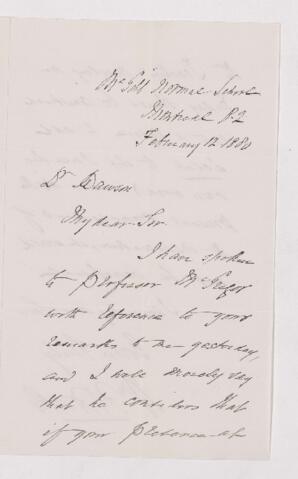 McGill Normal School
Montreal P.Q
February 12 1880
Dr Dawson
My dear Sir
I have spoken
to Professor McGregor
with reference to your
remarks to me yesterday,
and I will merely say
that he considers that
if your presence at